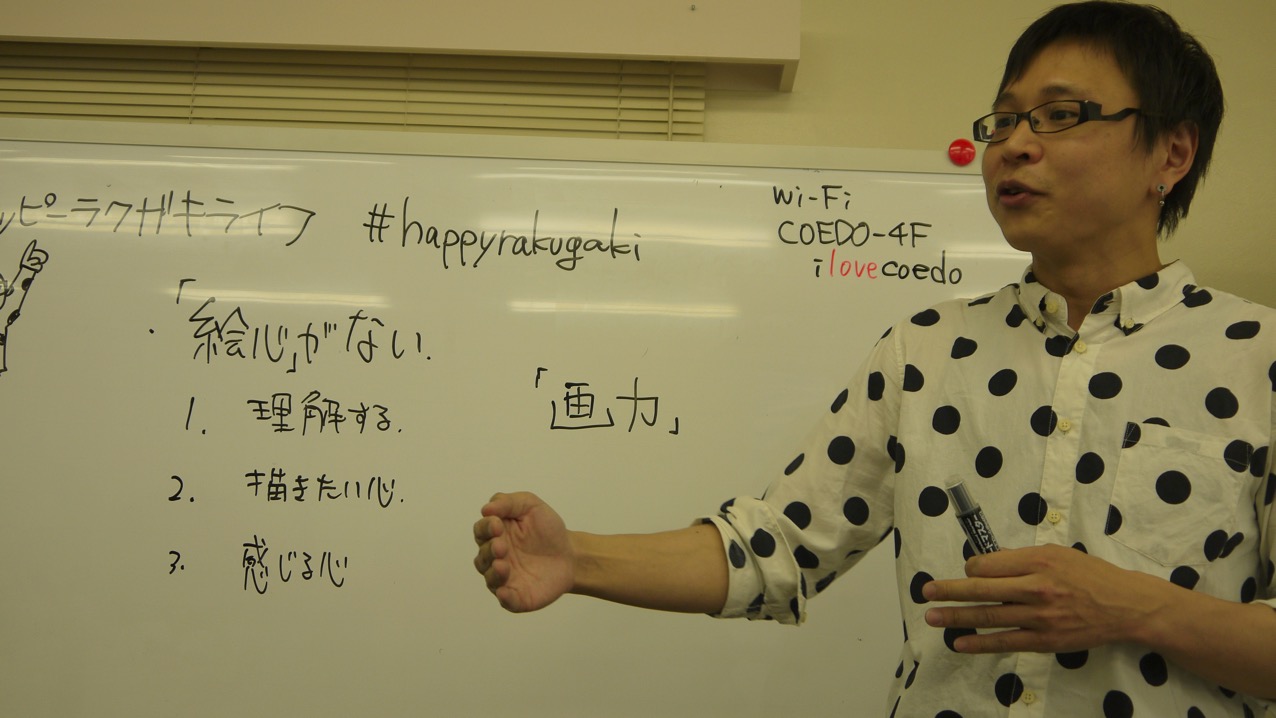 ッピーラクガキライフ #happyrakugaki
wi-Fi
COEDO-4F
ilovecoedo
・「絵心」がない.
1. 理解する.
2. 描きたい心.
3. 感じる心
「画力」